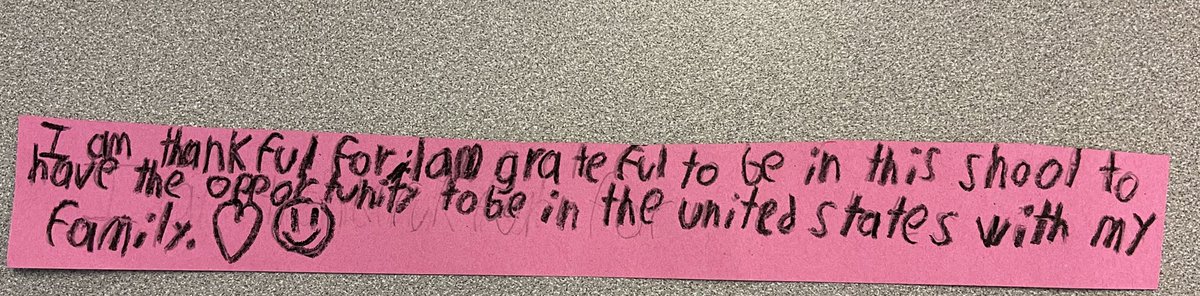 I am thankful for: I am grateful to be in this shool to
have the opportunity to be in the united states with my
family.